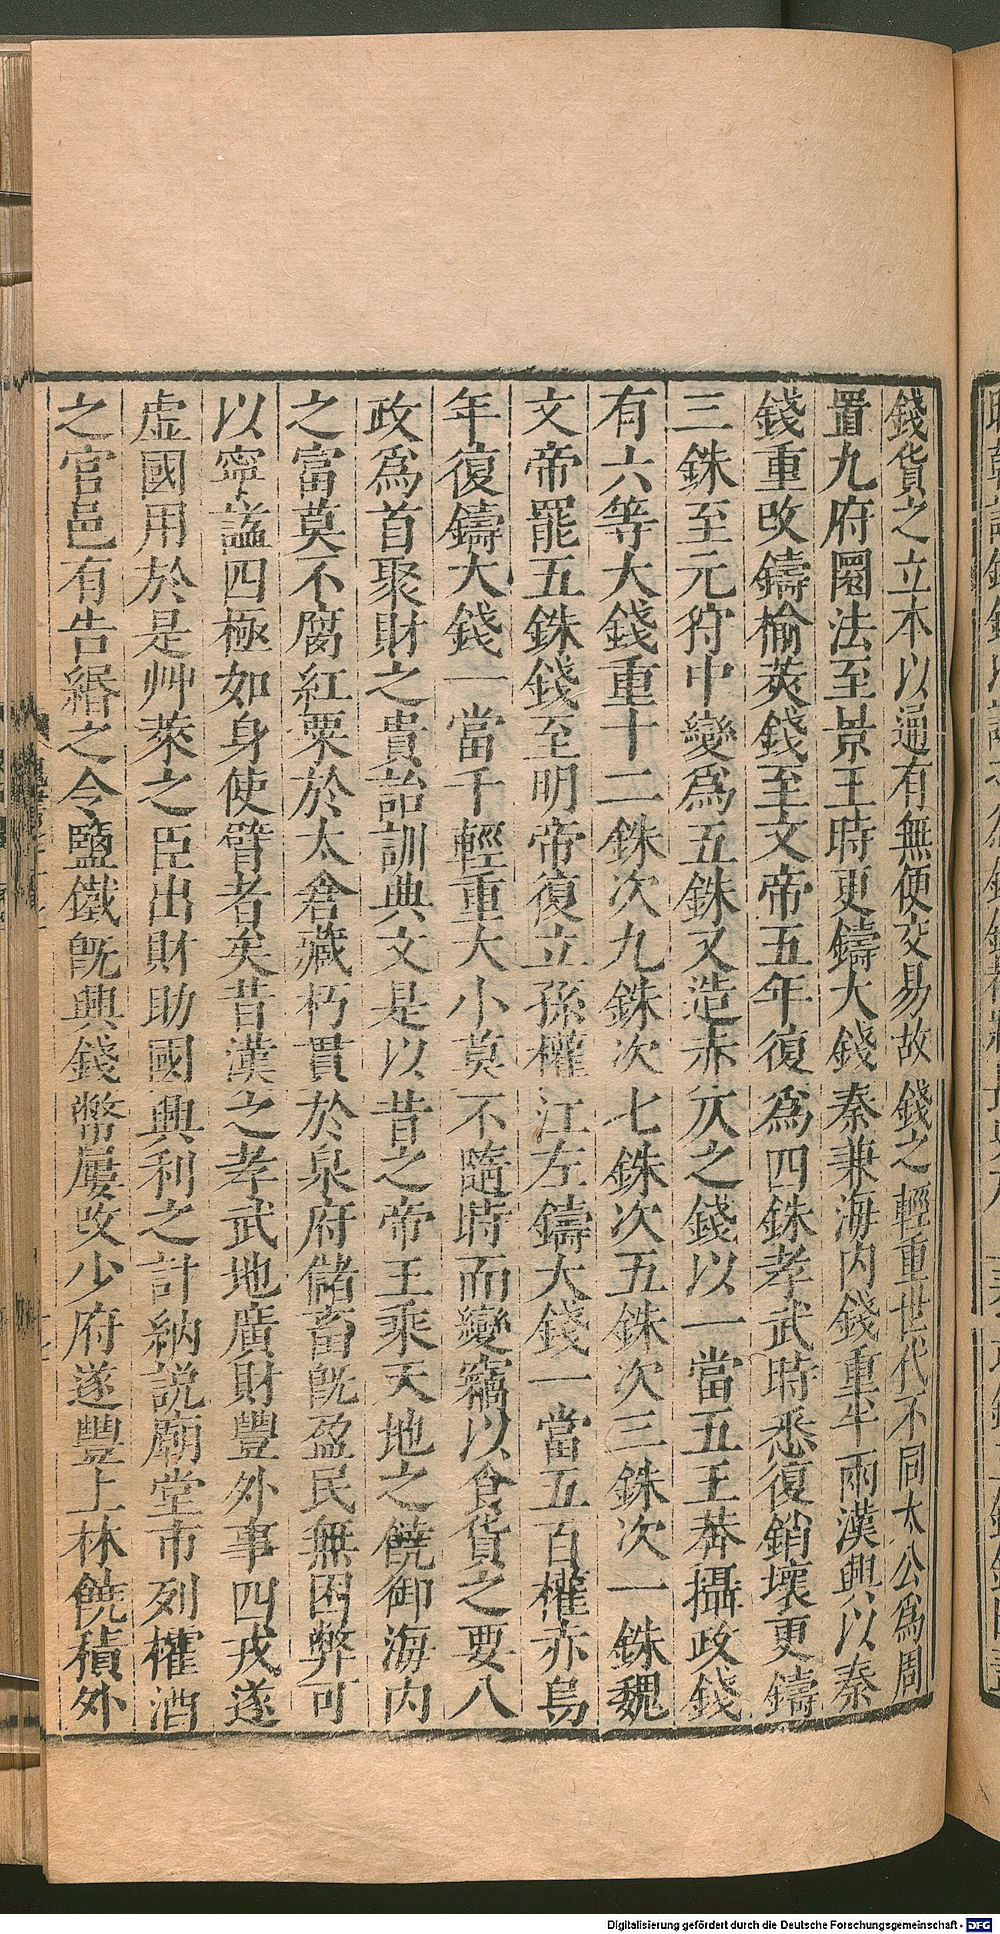 錢貨之立本以通有無便交易故錢之輕重世代不同太公爲周
置九府圜法至景王時更鑄大錢秦兼海內錢重半兩漢興以秦
錢重改鑄榆莢錢至文帝五年復爲四銖孝武時悉復銷壞更鑄
三銖至元狩中變爲五銖又造赤仄之錢以一當五王莽攝政錢
有六等大錢重十二銖次九銖次七銖次五銖次三銖次一銖魏
文帝罷五銖錢至明帝復立孫權江左鑄大錢一當五百權赤烏
年復鑄大錢一當千輕重大小莫不隨時而變竊以食貨之要八
政爲首聚財之貴詒訓典文是以昔之帝王乘天地之饒御海內
之富莫不腐紅粟於太倉藏朽貫於泉府儲畜旣盈民無困弊可
以寧謐四極如身使臂者矣昔漢之孝武地廣財豐外事四戎遂
虛國用於是艸萊之臣出財助國興利之計納說廟堂市列榷酒
之官邑有告緡之令鹽鐵旣興錢幣屢改少府遂豐上林饒積外
Digitalisierung gefördert durch die Deutsche Forschungsgemeinschaft - DFG